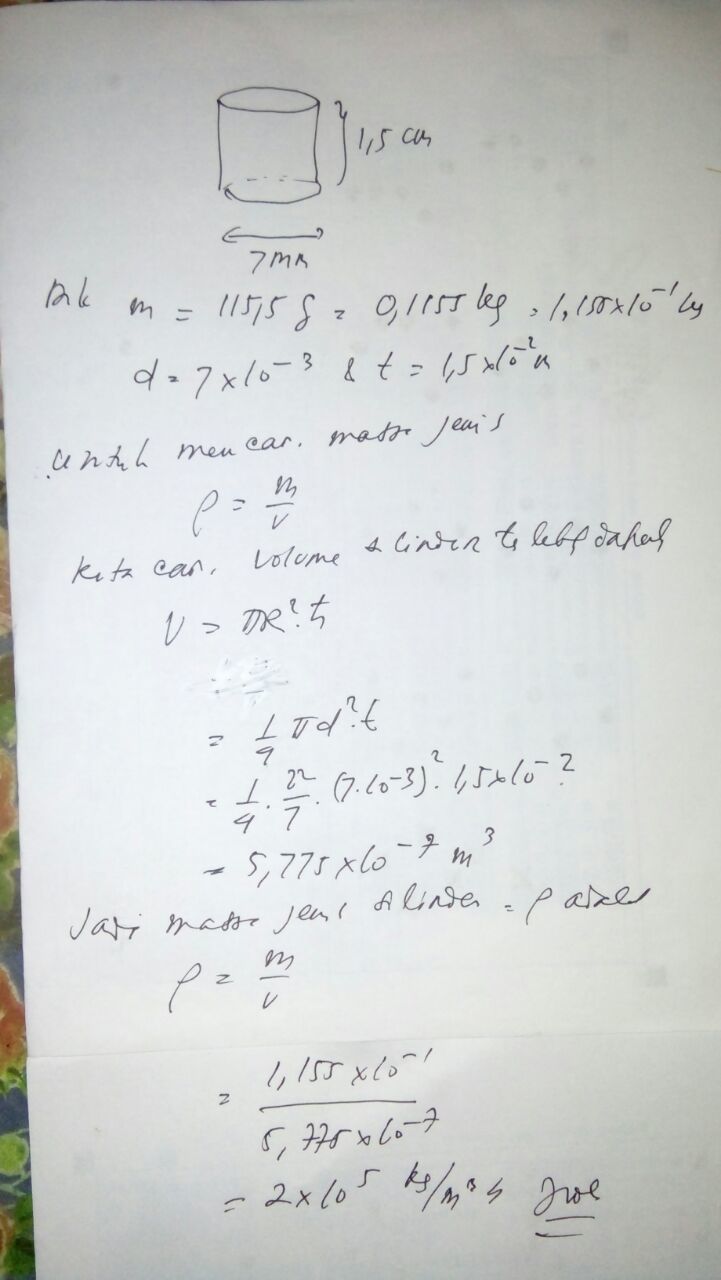 1,5 cm
7 mm
Dik m = 115,5 g = 0,1155 kg = 1,155x10⁻¹ kg
d = 7x10⁻³ & t = 1,5x10⁻² m
Untuk mencari massa jenis
ρ = m/v
kita cari volume silinder terlebih dahulu
V = πR²t
= 1/4 πd²t
= 1/4 . 22/7 . (7.10⁻³)². 1,5x10⁻²
= 5,775x10⁻⁷ m³
Jadi massa jenis silinder = ρ
ρ = m/v
= 1,155x10⁻¹ / 5,775x10⁻⁷
= 2x10⁵ kg/m³